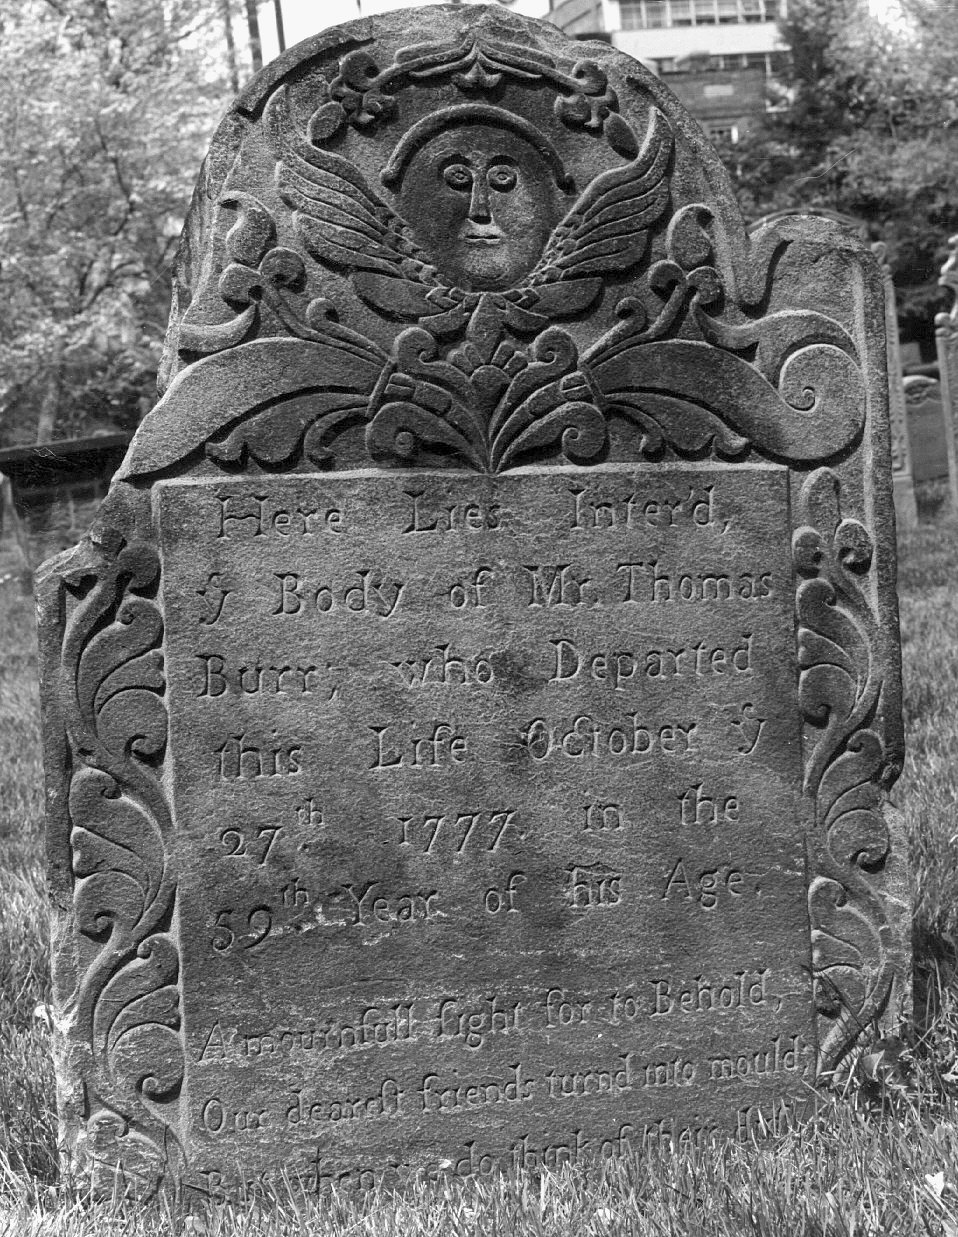 Here Lies Inter'd,
yͤ Body of Mr. Thomas
Burr; who Departed
this Life October yͤ
27th 1777. in the
59th Year of his Age.
A mournfull ſight for to Behold,
Our deareſt friends turnd into mould,
But when we do think of their